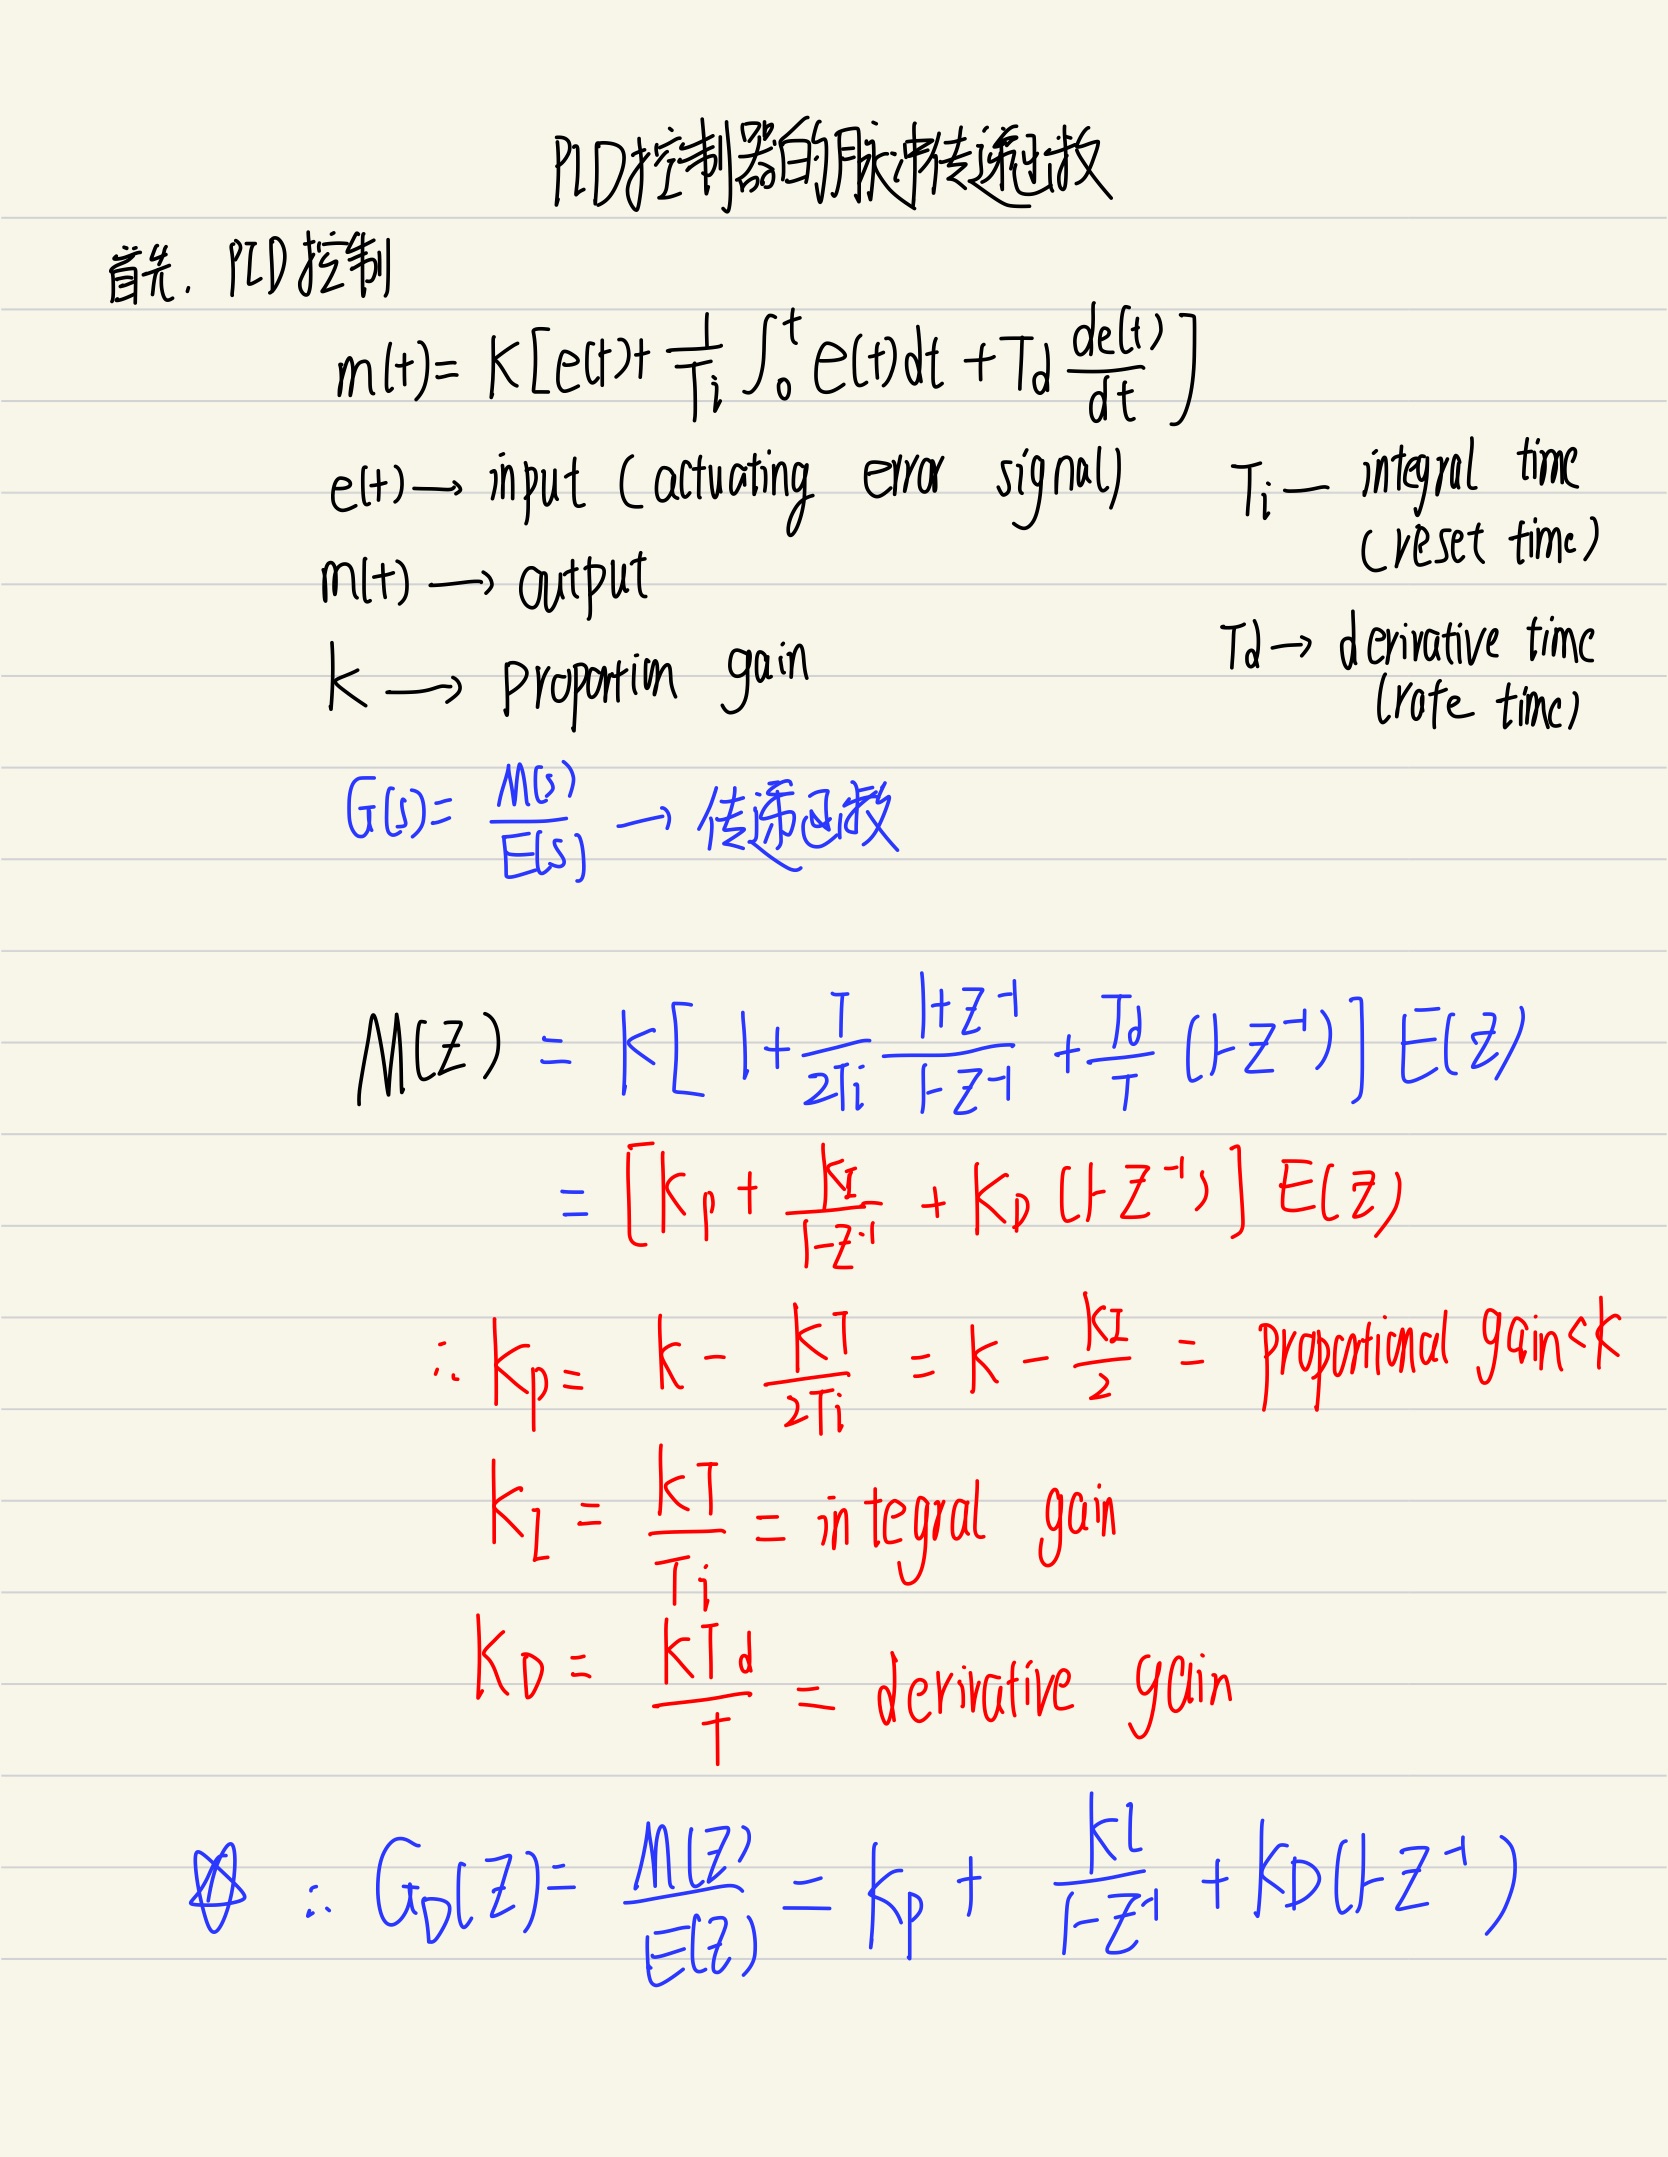 PID控制器的脉冲传递函数
首先. PID控制
m(t) = K[e(t) + \frac{1}{Ti} \int_0^t e(t)dt + Td \frac{de(t)}{dt}]
e(t) → input (actuating error signal)
Ti — integral time
(reset time)
m(t) → output
K → proportion gain
Td → derivative time
(rate time)
G(s) = \frac{M(s)}{E(s)} → 传递函数
M(Z) = K[1 + \frac{T}{2Ti} \frac{1+Z^{-1}}{1-Z^{-1}} + \frac{Td}{T} (1-Z^{-1})] E(Z)
= [Kp + \frac{K_I}{1-Z^{-1}} + K_D (1-Z^{-1})] E(Z)
∴ Kp = K - \frac{KT}{2Ti} = K - \frac{K_I}{2} = proportional gain < K
K_I = \frac{KT}{Ti} = integral gain
K_D = \frac{KTd}{T} = derivative gain
☆ ∴ G_D(Z) = \frac{M(Z)}{E(Z)} = Kp + \frac{KI}{1-Z^{-1}} + KD(1-Z^{-1})